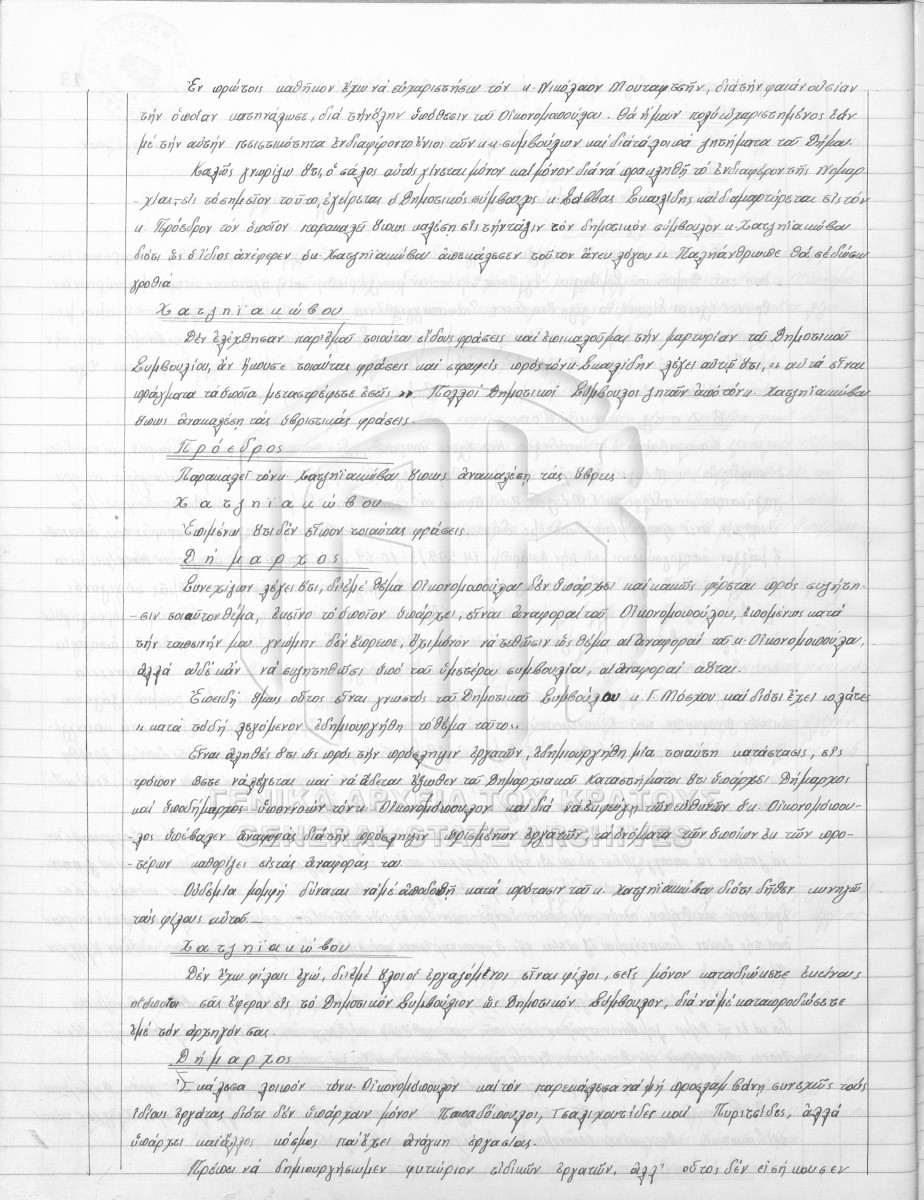 Ἐν πρώτοις καθῆκον ἔχω νά εὐχαριστήσω τόν κ. Νικόλαον Μουταφτσῆν, διά τήν φαιάν οὐσίαν
τήν ὁποίαν κατηνάλωσε, διά τήν ὅλην ὑπόθεσιν τοῦ Οἰκονομοπούλου. Θά ἤμουν πολύ εὐχαριστημένος ἐάν
μέ τήν αὐτήν πεισματικότητα ἐνδιαφέροντο ἔνιοι τῶν κ.κ. συμβούλων καί διά τά λοιπά ζητήματα τοῦ Δήμου.
Καλῶς γνωρίζω ὅτι, ὁ σάλος αὐτός γίνεται μόνον καί μόνον διά νά προκληθῇ τό ἐνδιαφέρον τῆς Νομαρ-
-χίας εἰς τό σημεῖον τοῦτο, ἐγείρεται ὁ Δημοτικός σύμβουλος κ. Σάββας Σκαλίδης καί διαμαρτύρεται εἰς τόν
κ. Πρόεδρον τόν ὁποῖον παρακαλεῖ ὅπως καλέσῃ εἰς τήν τάξιν τόν δημοτικόν σύμβουλον κ. Χατζηϊακώβου
διότι ὡς ὁ ἴδιος ἀνέφερεν ὁ κ. Χατζηϊακώβου ἀπεκάλεσεν τοῦτον ἄνευ λόγου «Παληάνθρωπε θά σέ δώσω
γροθιά
Χατζηϊακώβου
Δέν ἐλέχθησαν παρ' ἐμοῦ τοιαῦται εἴδους φράσεις καί ἐπικαλοῦμαι τήν μαρτυρίαν τοῦ Δημοτικοῦ
Συμβουλίου, ἄν ἤκουσε τοιαύτας φράσεις καί στραφείς πρός τόν κ. Σκαλίδην λέγει αὐτῷ ὅτι, «αὐτά εἶναι
πράγματα τά ὁποῖα μεταστρέφετε ἐσεῖς». Πολλοί Δημοτικοί Σύμβουλοι ζητοῦν ἀπό τόν κ. Χατζηϊακώβου
ὅπως ἀνακαλέσῃ τάς ὑβριστικάς φράσεις.
Πρόεδρος
Παρακαλεῖ τόν κ. Χατζηϊακώβου ὅπως ἀνακαλέσῃ τάς ὕβρεις.
Χατζηϊακώβου
Ἐπιμένω ὅτι δέν εἶπον τοιαύτας φράσεις.
Δήμαρχος
Συνεχίζων λέγει ὅτι, δι' ἐμέ θέμα Οἰκονομοπούλου δέν ὑπάρχει καί κακῶς φέρεται πρός συζήτη-
-σιν τοιοῦτον θέμα, ἐκεῖνο τό ὁποῖον ὑπάρχει, εἶναι ἀναφοραί τοῦ Οἰκονομοπούλου, ἑπομένως κατά
τήν ταπεινήν μου γνώμην δέν ἔπρεπε, ὄχι μόνον νά τεθῶσιν ὡς θέμα αἱ ἀναφοραί τοῦ κ. Οἰκονομοπούλου,
ἀλλά οὐδέ κἄν νά συζητηθῶσι ὑπό τοῦ ὑμετέρου συμβουλίου, αἱ ἀναφοραί αὗται.
Ἐπειδή ὅμως οὗτος εἶναι γνωστός τοῦ Δημοτικοῦ Συμβούλου κ. Γ. Μόσχου καί διότι ἔχει πλάτες
«κατά τό δή λεγόμενον ἐδημιουργήθη τό θέμα τοῦτο»
Εἶναι ἀληθές ὅτι ὡς πρός τήν πρόσληψιν ἐργατῶν, ἐδημιουργήθη μία τοιαύτη κατάστασις, εἰς
τρόπον ὥστε νά λέγεται καί νά ᾄδεται ἔξωθεν τοῦ Δημαρχιακοῦ Καταστήματος ὅτι ὑπάρχει Δήμαρχος
καί ὑποδήμαρχος ὑπονοῶν τόν κ. Οἰκονομόπουλον καί διά νά ἐκφεύγῃ τῶν εὐθυνῶν ὁ κ. Οἰκονομόπου-
-λος ὑπέβαλεν ἀναφοράς διά τήν πρόσληψιν ὡρισμένων ἐργατῶν, τά ὀνόματα τῶν ὁποίων ἐκ τῶν προ-
-τέρων καθορίζει εἰς τάς ἀναφοράς του.
Οὐδεμία μομφή δύναται νά μέ ἀποδοθῇ κατά πρότασιν τοῦ κ. Χατζηϊακώβου διότι δῆθεν κυνηγῶ
τούς φίλους αὐτοῦ.
Χατζηϊακώβου
Δέν ἔχω φίλους ἐγώ, δι' ἐμέ ὅλοι οἱ ἐργαζόμενοι εἶναι φίλοι, σεῖς μόνον καταδιώκετε ἐκείνους
οἱ ὁποῖοι σᾶς ἔφεραν εἰς τό Δημοτικόν Συμβούλιον ὡς Δημοτικόν Σύμβουλον, διά νά μέ καταπροδώσετε
ἐμέ τόν ἀρχηγόν σας.
Δήμαρχος
Ἐκάλεσα λοιπόν τόν κ. Οἰκονομόπουλον καί τόν παρεκάλεσα νά μή προσλαμβάνῃ συνεχῶς τούς
ἰδίους ἐργάτας διότι δέν ὑπάρχουν μόνον Παπαδόπουλοι, Τσαλιχουτίδες καί Πυριτσίδες, ἀλλά
ὑπάρχει καί ἄλλος κόσμος πού ἔχει ἀνάγκη ἐργασίας.
Πρέπει νά δημιουργήσωμεν φυτώριον εἰδικῶν ἐργατῶν, ἀλλ' οὗτος δέν εἰσήκουσεν
ΓΕΝΙΚΑ ΑΡΧΕΙΑ ΤΟΥ ΚΡΑΤΟΥΣ
GENERAL STATE ARCHIVES